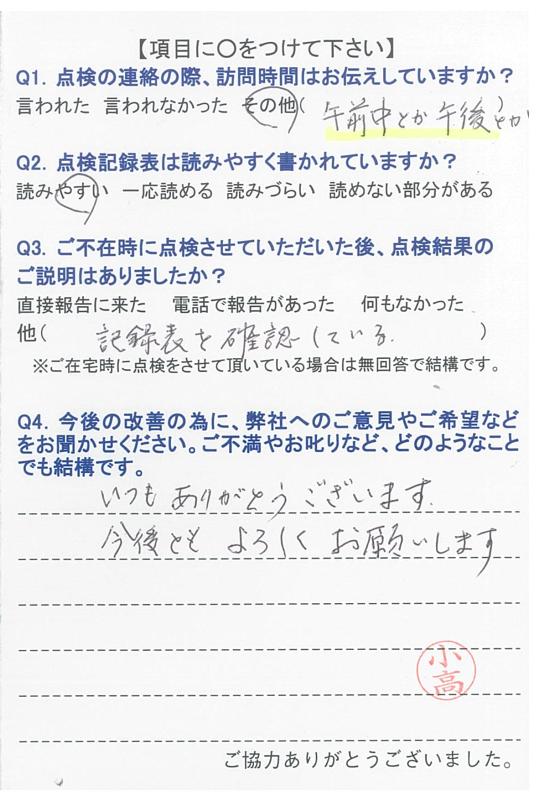 【項目に〇をつけて下さい】
Q1. 点検の連絡の際、訪問時間はお伝えしていますか？
言われた 言われなかった その他( 午前中とか午後とか )
Q2. 点検記録表は読みやすく書かれていますか？
読みやすい 一応読める 読みづらい 読めない部分がある
Q3. ご不在時に点検させていただいた後、点検結果の
ご説明はありましたか？
直接報告に来た 電話で報告があった 何もなかった
他( 記録表を確認している. )
※ご在宅時に点検をさせて頂いている場合は無回答で結構です。
Q4. 今後の改善の為に、弊社へのご意見やご希望など
をお聞かせください。ご不満やお叱りなど、どのようなこと
でも結構です。
いつもありがとうございます.
今後ともよろしくお願いします
小高
ご協力ありがとうございました。